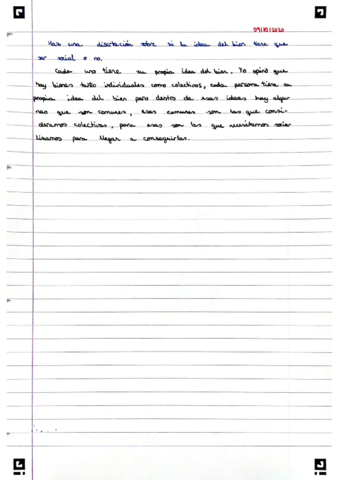 09/10/2020
Haz una disertación sobre si la idea del bien tiene que
ser social o no.
Cada uno tiene su propia idea del bien. Yo opino que
hay bienes tanto individuales como colectivos, cada persona tiene su
propia idea del bien pero dentro de esas ideas hay algu-
nas que son comunes, esas comunes son las que consi-
deramos colectivas, para esas son las que necesitamos
para llegar a conseguirlas.